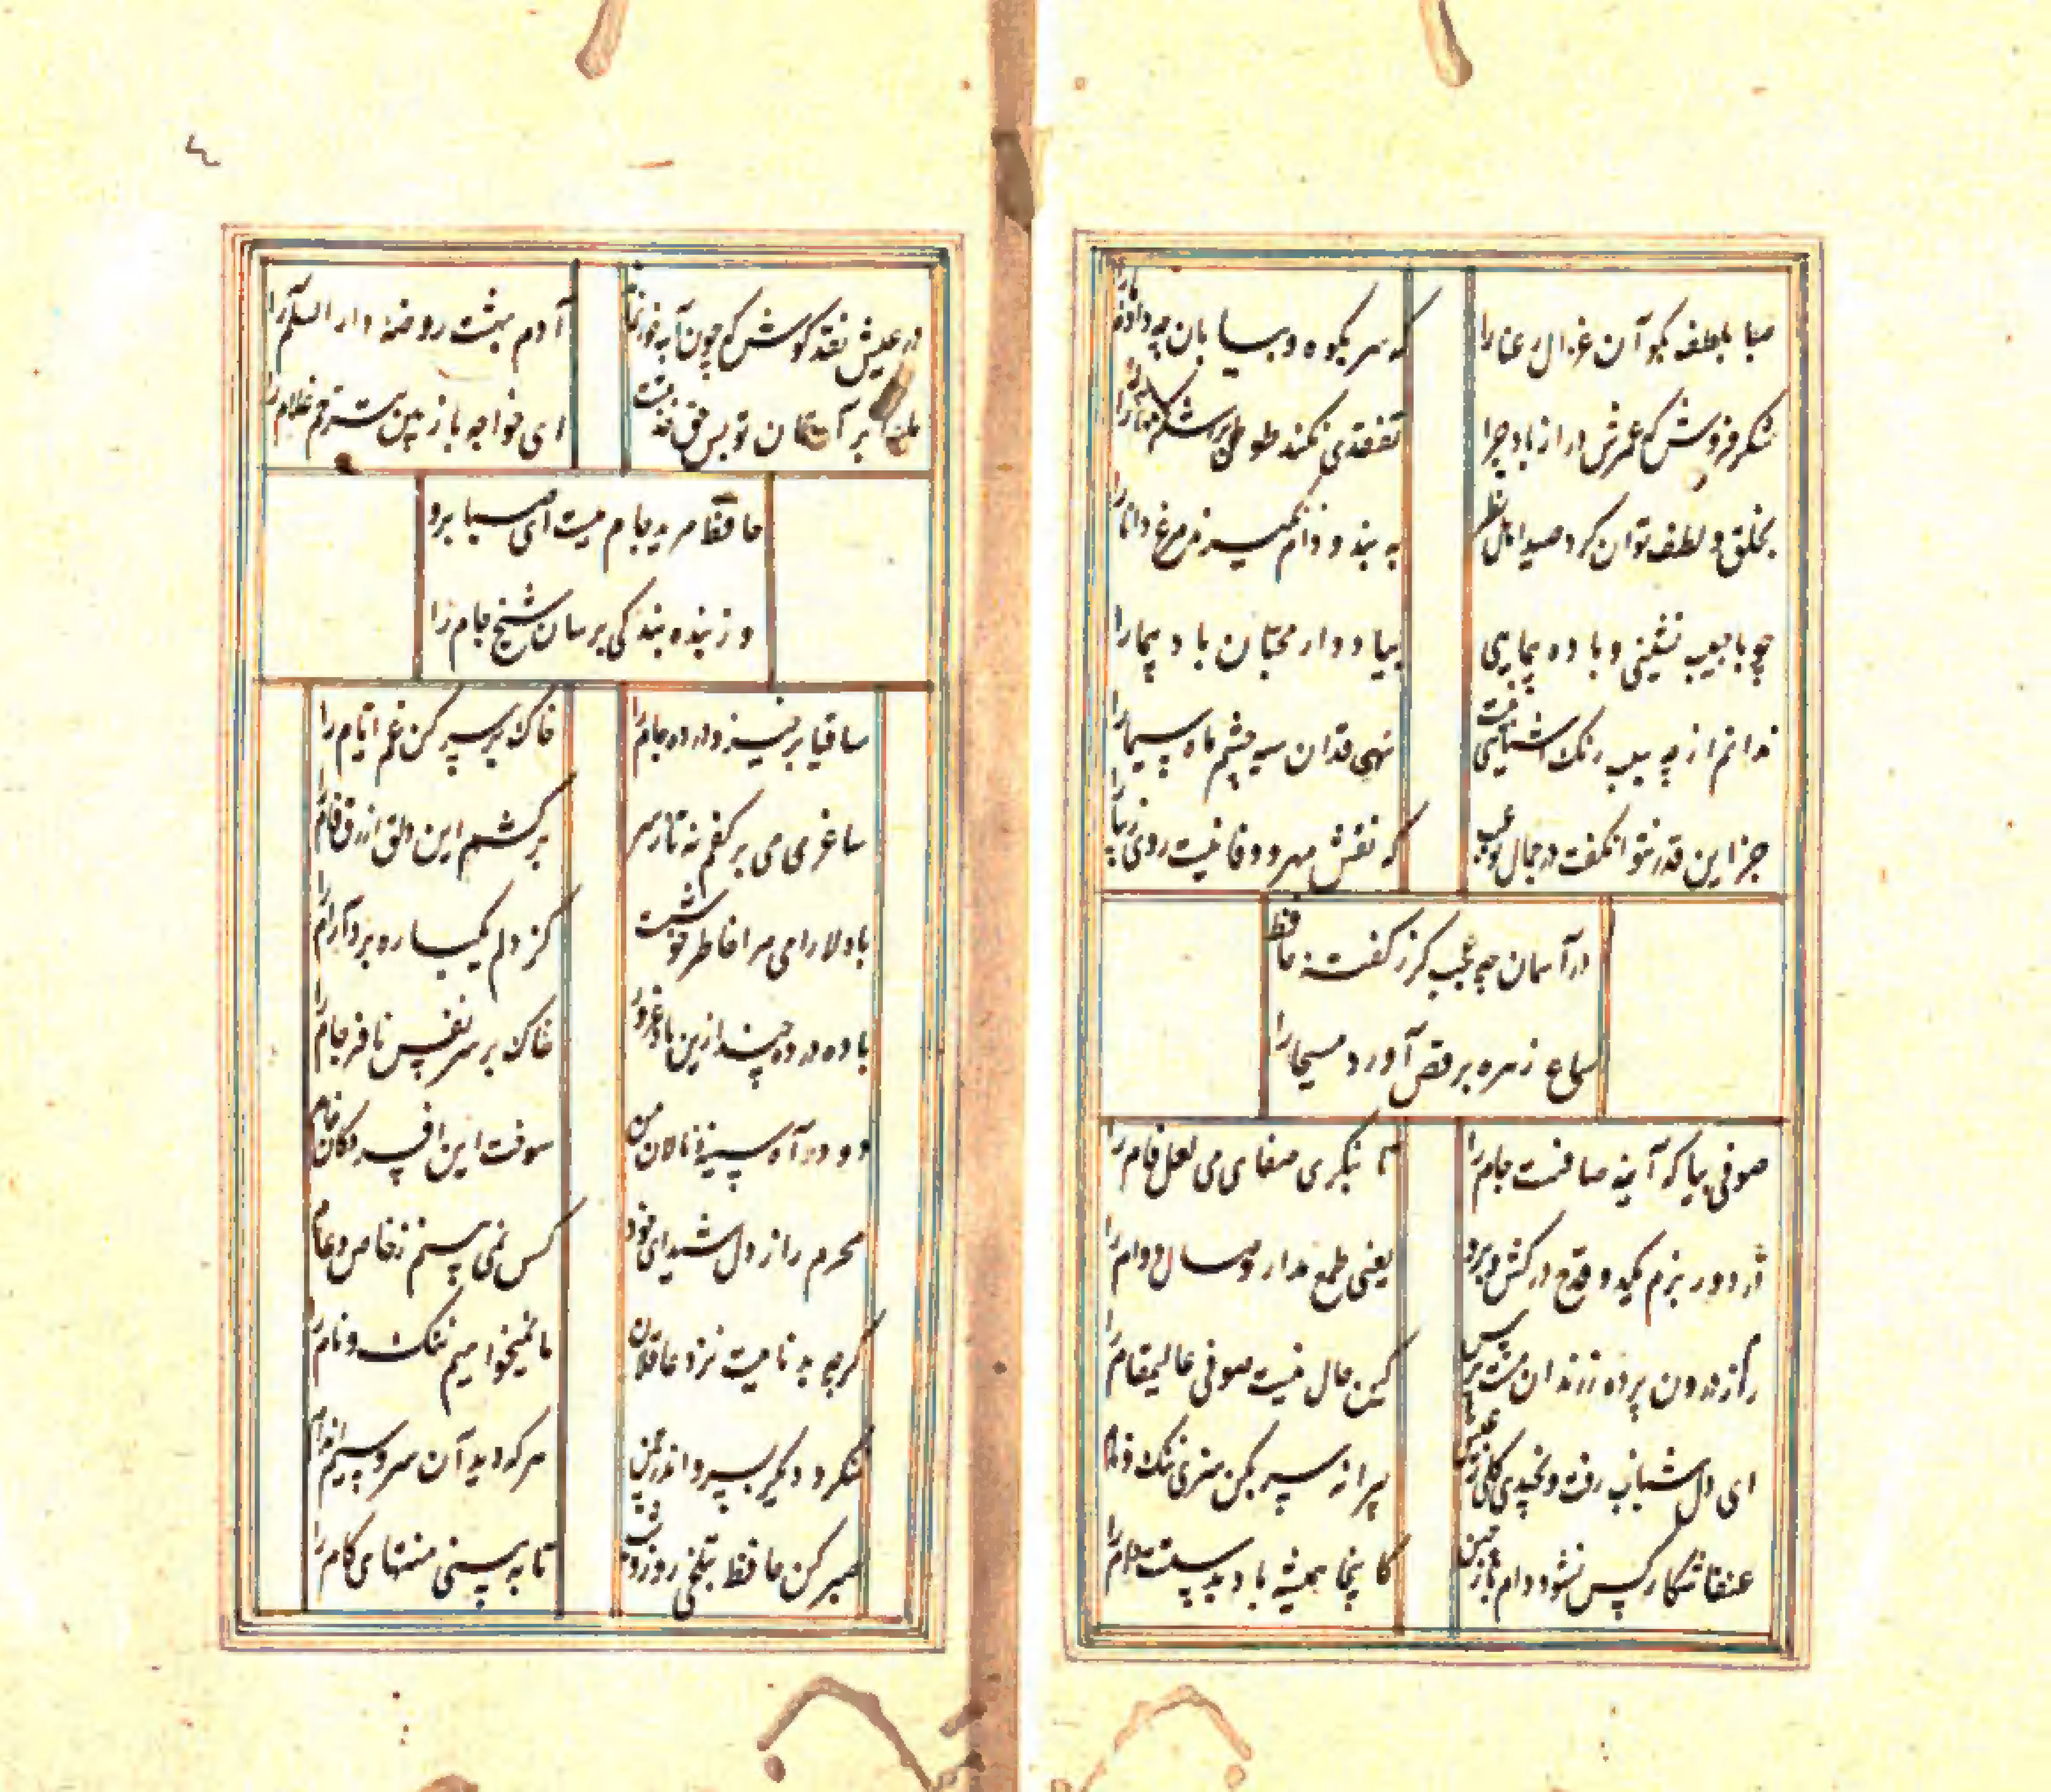 صبا بلطف بگو آن غزال رعنا را
که سر بکوه و بیابان تو داده ما را
شکر فروش که عمرش دراز باد چرا
تفقدی نکند طوطی شکر خا را
بخلق و لطف توان کرد صید اهل نظر
به بند و دام نگیرند مرغ دانا را
چو با حبیب نشینی و باده پیمایی
بیاد دار محبان باد پیما را
ندانم از چه سبب رنگ آشنایی نیست
سهی قدان سیه چشم ماه سیما را
جز این قدر نتوان گفت در جمال تو عیب
که نقش مهر و وفا نیست روی زیبا را
در آسمان چه عجب گر ز گفته حافظ
سماع زهره برقص آورد مسیحا را
صوفی بیا که آینه صافست جام را
تا بنگری صفای می لعل فام را
در دور بزم یکدو قدح در کش و برو
یعنی طمع مدار وصال دوام را
راز درون پرده ز رندان مست پرس
کین حال نیست صوفی عالیمقام را
ای دل شباب رفت و نچیدی گلی ز عیش
پیرانه سر بکن هنری ننگ و نام را
عنقا شکار کس نشود دام باز چین
کاینجا همیشه باد بدستست دام را
۴
در عیش نقد کوش که چون آبخور نماند
آدم بهشت روضه دار السلام را
ما را بر آستان تو بس حق خدمت
ای خواجه باز بین بترحم غلام را
حافظ مرید جام میست ای صبا برو
وز بنده بندگی برسان شیخ جام را
ساقیا برخیز و در ده جام را
خاک بر سر کن غم ایام را
ساغری می بر کفم نه تا ز سر
بر کشم این دلق ازرق فام را
با دلارامی مرا خاطر خوشست
کز دلم یکباره برد آرام را
باده در ده چند ازین باد غرور
خاک بر سر نفس نافرجام را
دود آه سینه نالان من
سوخت این افسردگان خام را
محرم راز دل شیدای خود
کس نمی بینم ز خاص و عام را
گرچه بد نامیست نزد عاقلان
ما نمیخواهیم ننگ و نام را
ننگرد دیگر بسرو اندر چمن
هر که دید آن سرو سیم اندام را
صبر کن حافظ بتلخی روز و شب
تا به بینی منتهای کام را